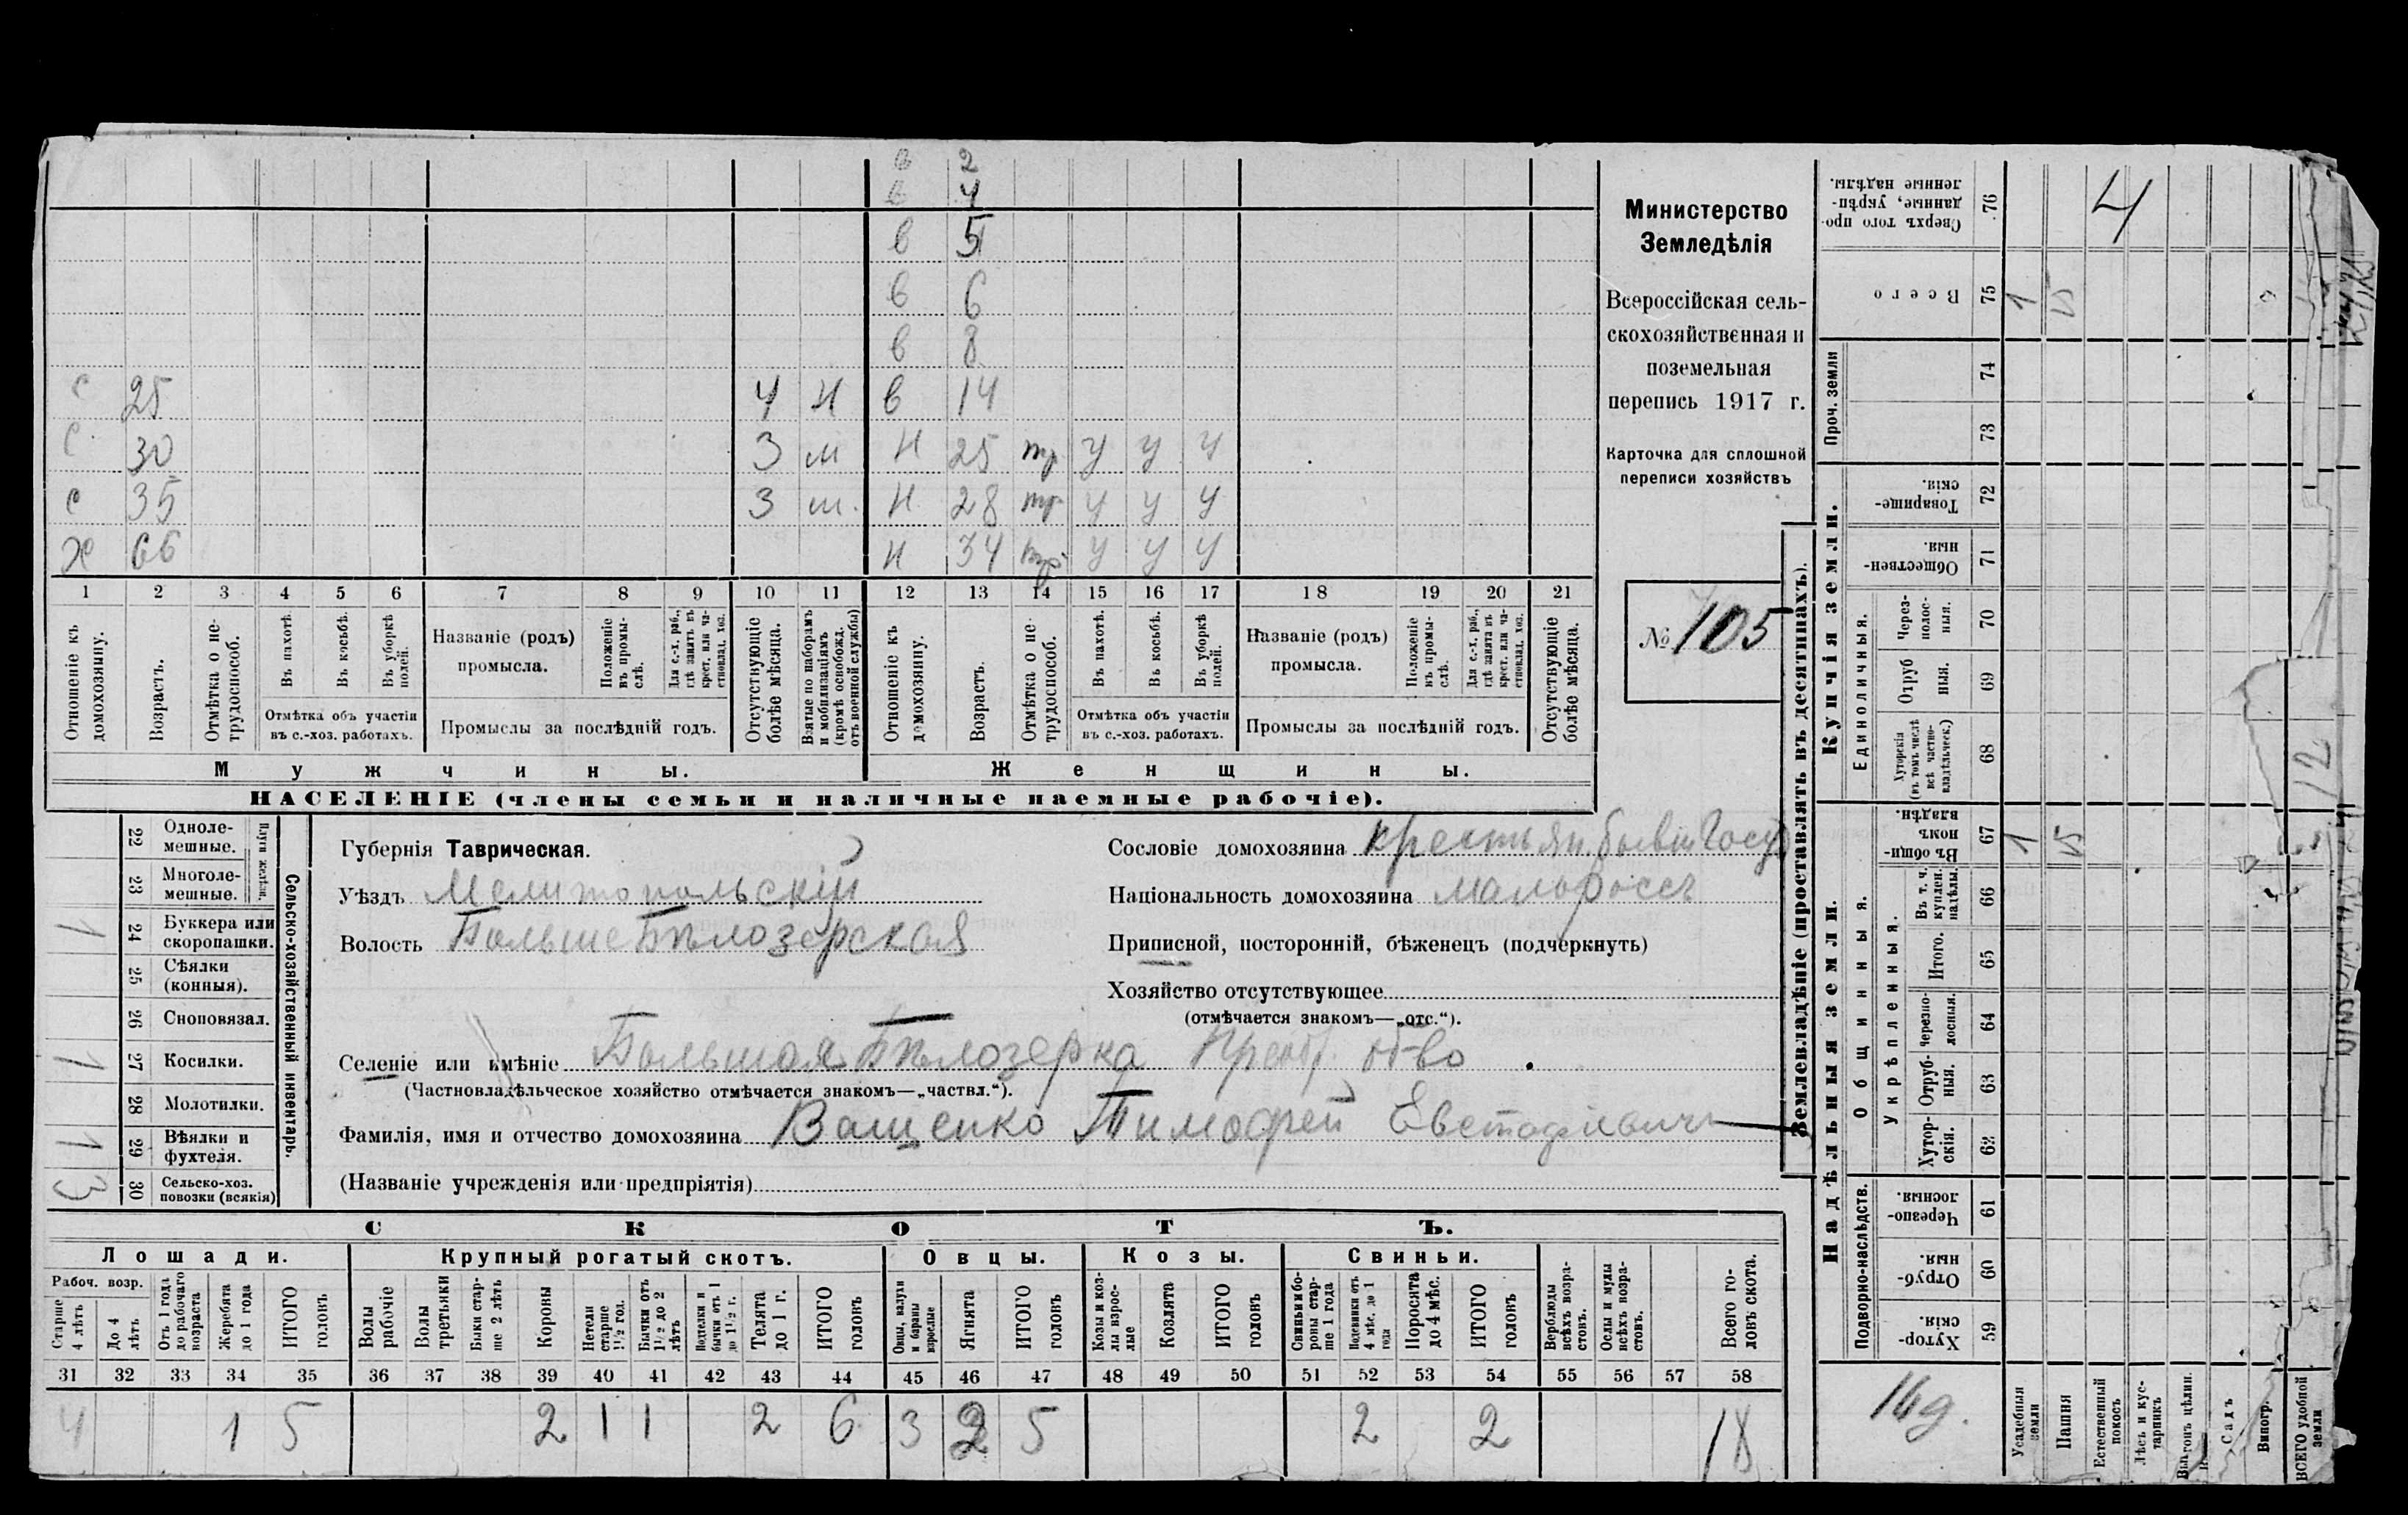 в 2
в 4
в 5
в 6
в 8
с 25 4 н в 14
с 30 3 м н 25 тр у у у
с 35 3 м. н 28 тр у у у
х 66 н 34 тр у у у
1 2 3 4 5 6 7 8 9 10 11 12 13 14 15 16 17 18 19 20 21
Отношеніе къ домохозяину.
Возрастъ.
Отмѣтка о не-трудоспособ.
Въ пахотѣ.
Въ косьбѣ.
Въ уборкѣ полей.
Отмѣтка объ участіи
въ с.-хоз. работахъ.
Названіе (родъ)
промысла.
Положеніе въ промы-слѣ.
Для с.-х. раб., гдѣ занятъ въ крест. или ча-стновлад. хоз.
Промыслы за послѣдній годъ.
Отсутствующіе болѣе мѣсяца.
Взятые по наборамъ и мобилизаціямъ (кромѣ освобожд. отъ военной службы)
Отношеніе къ домохозяину.
Возрастъ.
Отмѣтка о не-трудоспособ.
Въ пахотѣ.
Въ косьбѣ.
Въ уборкѣ полей.
Отмѣтка объ участіи
въ с.-хоз. работахъ.
Названіе (родъ)
промысла.
Положеніе въ промы-слѣ.
Для с.-х. раб., гдѣ занята въ крест. или ча-стновлад. хоз.
Промыслы за послѣдній годъ.
Отсутствующіе болѣе мѣсяца.
Мужчины.
Женщины.
НАСЕЛЕНІЕ (члены семьи и наличные наемные рабочіе).
Министерство
Земледѣлія
Всероссійская сель-
скохозяйственная и
поземельная
перепись 1917 г.
Карточка для сплошной
переписи хозяйствъ
№ 105
Сельско-хозяйственный инвентарь.
Плуги желѣзн.
22 Одноле-мешные.
23 Многоле-мешные.
1 24 Буккера или скоропашки.
25 Сѣялки (конныя).
26 Сноповязал.
1 27 Косилки.
28 Молотилки.
1 29 Вѣялки и фухтеля.
3 30 Сельско-хоз. повозки (всякія)
Губернія Таврическая.
Уѣздъ Мелитопольскій
Волость Больше Бѣлозерская
Сословіе домохозяина крестьян. бывш Госуд
Національность домохозяина малороссъ
Приписной, посторонній, бѣженецъ (подчеркнуть)
Хозяйство отсутствующее
(отмѣчается знакомъ—„отс.“).
Селеніе или имѣніе Большая Бѣлозерка об-во
(Частновладѣльческое хозяйство отмѣчается знакомъ—„частвл.“).
Фамилія, имя и отчество домохозяина Ващенко Тимофей Евстафіевичъ
(Названіе учрежденія или предпріятія)
СКОТЪ.
Лошади. Крупный рогатый скотъ. Овцы. Козы. Свиньи.
Рабоч. возр.
Старше 4 лѣтъ
До 4 лѣтъ
Отъ 1 года до рабочаго возраста
Жеребята до 1 года
ИТОГО головъ
Волы рабочіе
Волы третьяки
Быки стар-ше 2 лѣтъ
Коровы
Нетели старше 1½ год.
Бычки отъ 1½ до 2 лѣтъ
Подтелки и бычки отъ 1 до 1½ г.
Телята до 1 г.
ИТОГО головъ
Овцы, валухи и бараны взрослые
Ягнята
ИТОГО головъ
Козы и коз-лы взрос-лые
Козлята
ИТОГО головъ
Свиньи и бо-роны стар-ше 1 года
Подсвинки отъ 4 мѣс. до 1 года
Поросята до 4 мѣс.
ИТОГО головъ
Верблюды всѣхъ возра-стовъ.
Ослы и мулы всѣхъ возра-стовъ.
Всего го-ловъ скота.
31 32 33 34 35 36 37 38 39 40 41 42 43 44 45 46 47 48 49 50 51 52 53 54 55 56 57 58
4 1 5 2 1 1 2 6 3 2 5 2 2 18
Землевладѣніе (проставлять въ десятинахъ).
Надѣльныя земли.
Купчія земли.
Проч. земли
Подворно-наслѣдств.
Общинныя.
Укрѣпленныя.
Единоличныя.
Сверхъ того про-данные, укрѣп-ленные надѣлы. 76 4
Всего 75 1 15
74
73
Товарище-скія. 72
Обществен-ныя. 71
Через-полос-ныя. 70
Отруб ныя. 69
Хуторскія (въ томъ числѣ всѣ частно-владѣльческ.) 68
Въ общи-номъ владѣн. 67 1 15
Въ т. ч. куплен. надѣлы. 66
Итого. 65
черезпо-лосныя. 64
Отруб-ныя. 63
Хутор-скія. 62
Черезпо-лосныя. 61
Отруб-ныя. 60
Хутор-скія. 59
16 д.
Усадебныя земли
Пашня
Естественный покосъ
Лѣсъ и кус-тарникъ
Садъ
Виногр.
ВСЕГО удобной земли
12